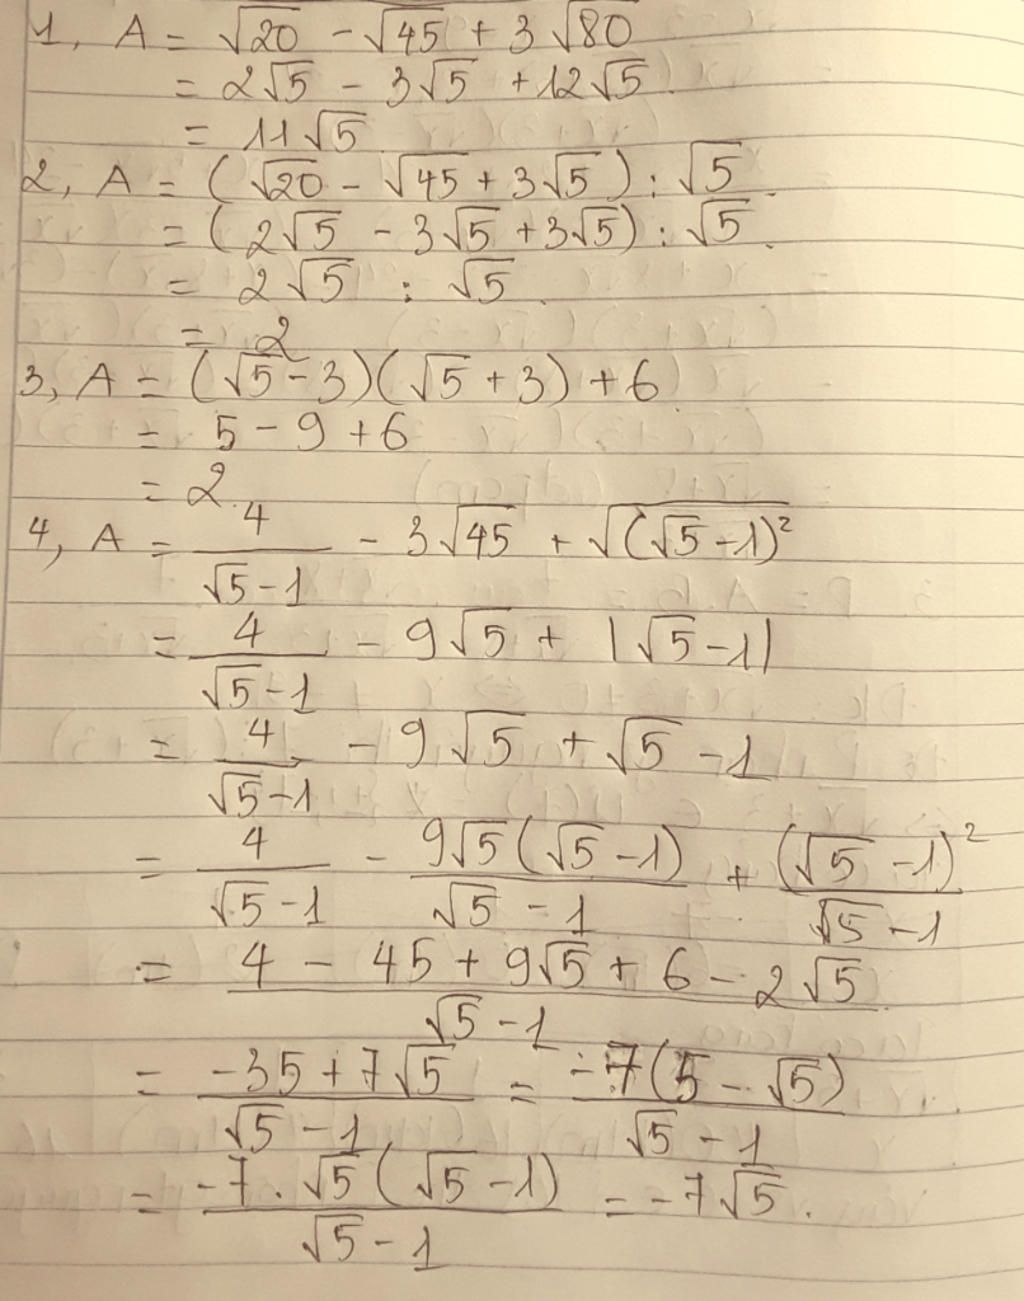 1, A = √20 - √45 + 3√80
= 2√5 - 3√5 + 12√5
= 11√5
2, A = (√20 - √45 + 3√5) : √5
= (2√5 - 3√5 + 3√5) : √5
= 2√5 : √5
= 2
3, A = (√5 - 3)(√5 + 3) + 6
= 5 - 9 + 6
= 2
4, A = 4/(√5 - 1) - 3√45 + √((√5 - 1)²)
= 4/(√5 - 1) - 9√5 + |√5 - 1|
= 4/(√5 - 1) - 9√5 + √5 - 1
= 4/(√5 - 1) - 9√5(√5 - 1)/(√5 - 1) + (√5 - 1)²/(√5 - 1)
= (4 - 45 + 9√5 + 6 - 2√5)/(√5 - 1)
= (-35 + 7√5)/(√5 - 1) = -7(5 - √5)/(√5 - 1)
= -7.√5(√5 - 1)/(√5 - 1) = -7√5.